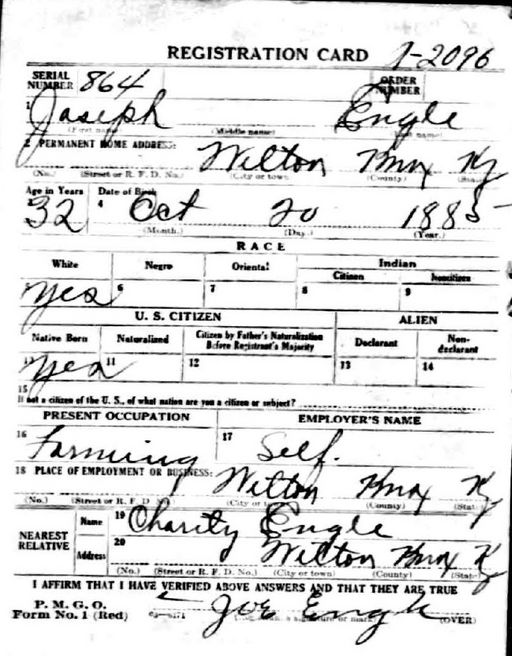 REGISTRATION CARD 1-2096
SERIAL NUMBER 864 ORDER NUMBER
1 Joseph Engle
(First name) (Middle name) (Last name)
2 PERMANENT HOME ADDRESS: Wilton Knox Ky
(No.) (Street or R. F. D. No.) (City or town) (County) (State)
Age in Years Date of Birth
32 4 Oct 20 1885
(Month.) (Day.) (Year.)
RACE
White Negro Oriental Indian
Citizen Noncitizen
Yes 6 7 8 9
U. S. CITIZEN ALIEN
Native Born Naturalized Citizen by Father's Naturalization Before Registrant's Majority Declarant Non-declarant
Yes 11 12 13 14
15
If not a citizen of the U. S., of what nation are you a citizen or subject?
PRESENT OCCUPATION EMPLOYER'S NAME
16 Farming 17 Self.
18 PLACE OF EMPLOYMENT OR BUSINESS: Wilton Knox Ky
(No.) (Street or R. F. D. No.) (City or town) (County) (State)
NEAREST RELATIVE Name 19 Charity Engle
Address 20 Wilton Knox Ky
(No.) (Street or R. F. D. No.) (City or town) (County) (State)
I AFFIRM THAT I HAVE VERIFIED ABOVE ANSWERS AND THAT THEY ARE TRUE
P. M. G. O.
Form No. 1 (Red) Joe Engle (OVER)